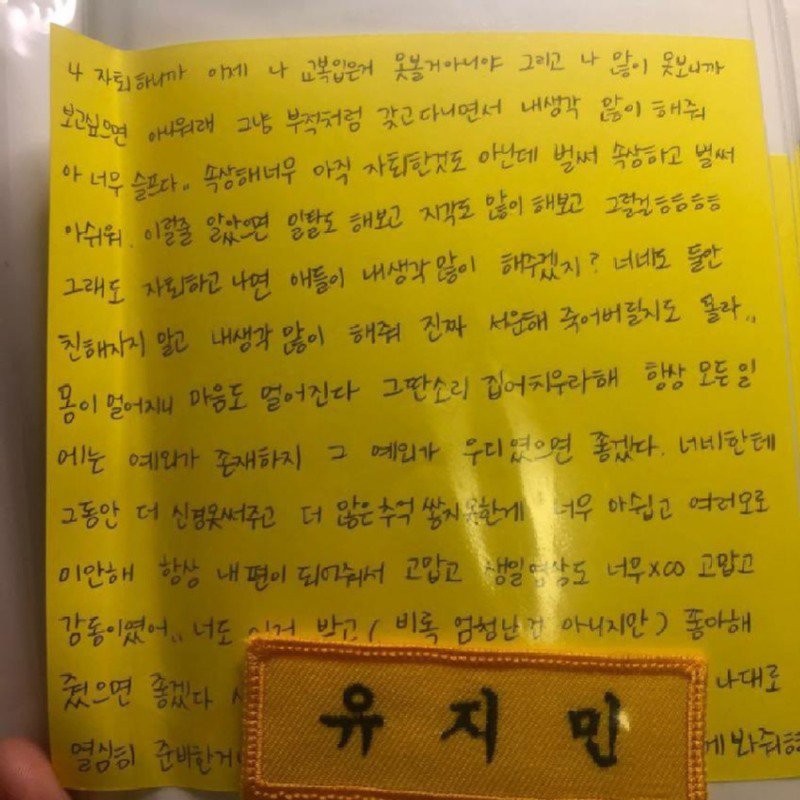 나 자퇴하니까 이제 나 교복입은거 못볼거아니야 그리고 나 많이 못보니까
보고싶으면 아쉬워해 그냥 부적처럼 갖고다니면서 내생각 많이 해줘
아 너무 슬프다.. 속상해너무 아직 자퇴한것도 아닌데 벌써 속상하고 벌써
아쉬워. 이럴줄 알았으면 일탈도 해보고 지각도 많이 해보고 그럴걸ㅎㅎㅎㅎ
그래도 자퇴하고 나면 애들이 내생각 많이 해주겠지? 너네도 둘안
친해지지 말고 내생각 많이 해줘 진짜 서운해 죽어버릴지도 몰라..
몸이 멀어지니 마음도 멀어진다 그딴소리 집어치우라해 항상 모든 일
에는 예외가 존재하지 그 예외가 우리였으면 좋겠다. 너네한테
그동안 더 신경못써주고 더 많은 추억 쌓지못한게 너무 아쉽고 여러모로
미안해 항상 내 편이 되어줘서 고맙고 생일영상도 너무x∞ 고맙고
감동이였어.. 너도 이거 받고 (비록 엄청난건 아니지만) 좋아해
줬으면 좋겠다 나대로
열심히 준비한거 게 봐줘ㅎ
유지민